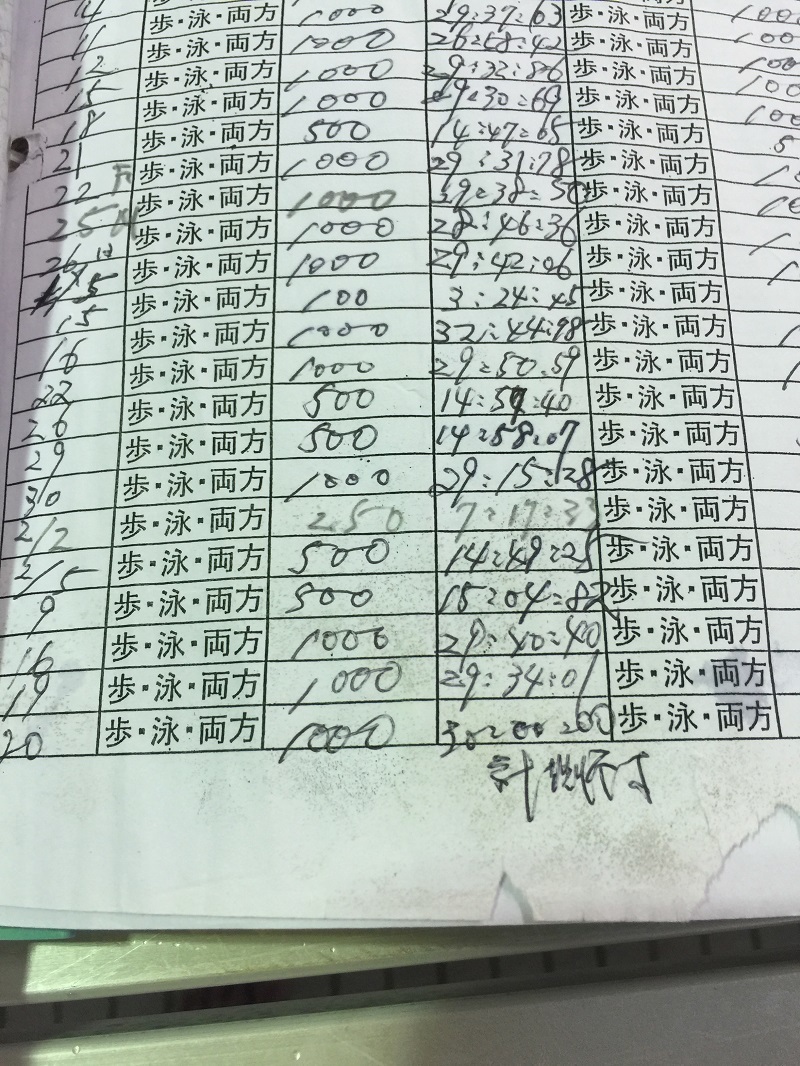 歩・泳・両方 1000 29:37:63 歩・泳・両方
11 歩・泳・両方 1000 26:58:42 歩・泳・両方
12 歩・泳・両方 1000 29:32:86 歩・泳・両方
15 歩・泳・両方 1000 29:30:69 歩・泳・両方
18 歩・泳・両方 500 14:47:65 歩・泳・両方
21 歩・泳・両方 1000 29:31:78 歩・泳・両方
22 歩・泳・両方 1000 29:38:50 歩・泳・両方
25 歩・泳・両方 1000 28:46:36 歩・泳・両方
26 歩・泳・両方 1000 29:42:06 歩・泳・両方
歩・泳・両方 100 3:24:45 歩・泳・両方
15 歩・泳・両方 1000 32:44:98 歩・泳・両方
16 歩・泳・両方 1000 29:50:59 歩・泳・両方
22 歩・泳・両方 500 14:59:40 歩・泳・両方
26 歩・泳・両方 500 14:58:07 歩・泳・両方
29 歩・泳・両方 1000 29:15:28 歩・泳・両方
30 歩・泳・両方 250 7:17:33 歩・泳・両方
2/2 歩・泳・両方 500 14:49:25 歩・泳・両方
2/5 歩・泳・両方 500 15:04:82 歩・泳・両方
9 歩・泳・両方 1000 29:40:40 歩・泳・両方
16 歩・泳・両方 1000 29:34:01 歩・泳・両方
19 歩・泳・両方 1000 30:00:00 歩・泳・両方
20